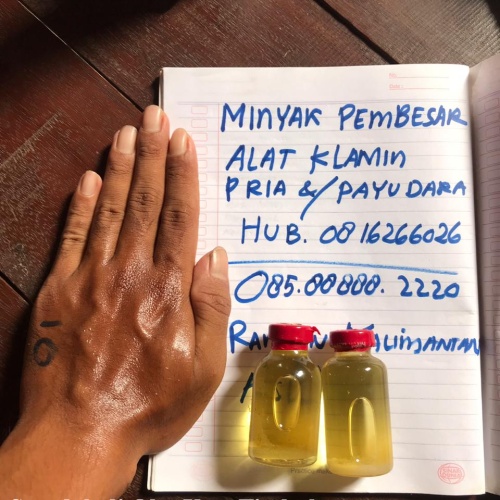 MINYAK PEMBESAR
ALAT KLAMIN
PRIA &/ PAYUDARA
HUB. 0816266026
085.00888.2220
KALIMANTAN
10